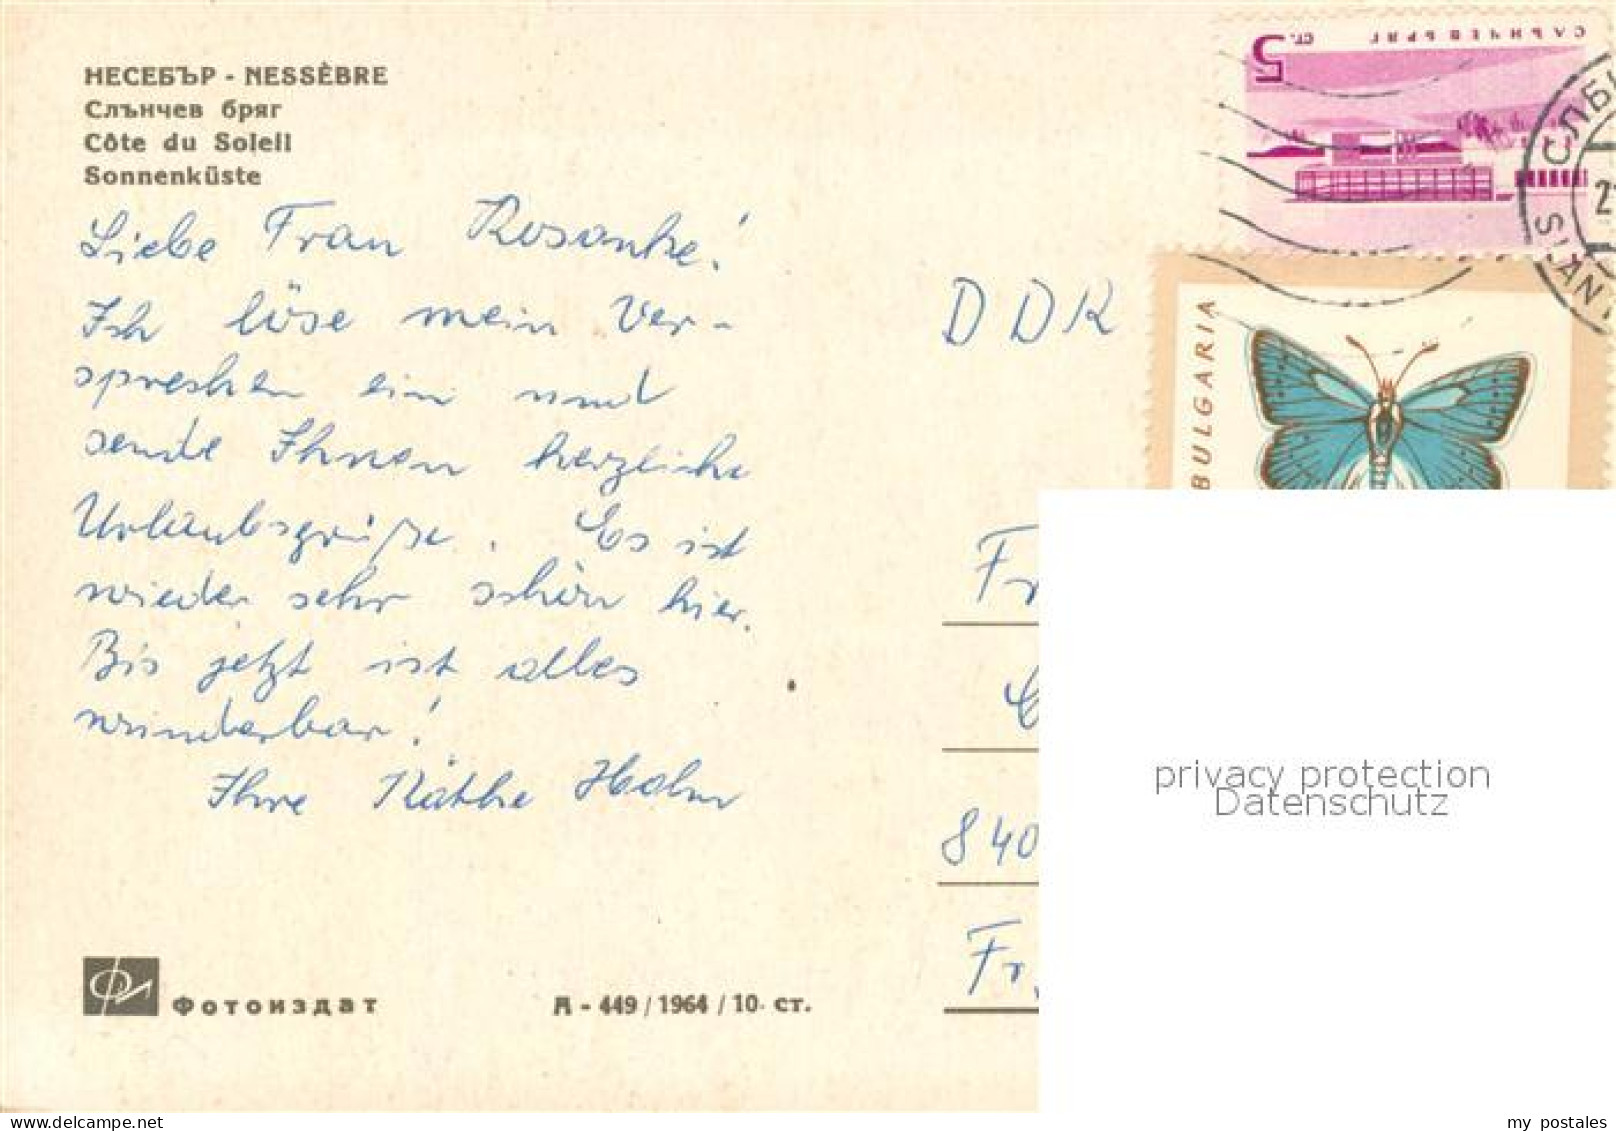 НЕСЕБЪР - NESSÈBRE
Слънчев бряг
Côte du Soleil
Sonnenküste
Liebe Frau Rosanke!
Ich löse mein Ver-
sprechen ein und
sende Ihnen herzliche
Urlaubsgrüße. Es ist
wieder sehr schön hier.
Bis jetzt ist alles
wunderbar!
Ihre Käthe Hahn
Фотоиздат
А - 449 / 1964 / 10. ст.
5 СТ. СЛЪНЧЕВ БРЯГ
BULGARIA
DDR
Fr
840
Fr
privacy protection
Datenschutz
my postales